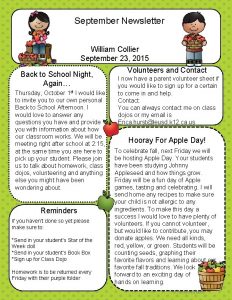 September Newsletter
William Collier
September 23, 2015
Back to School Night,
Again…
Thursday, October 1st I would like
to invite you to our own personal
Back to School Afternoon. I
would love to answer any
questions you have and provide
you with information about how
our classroom works. We will be
meeting right after school at 2:15,
at the same time you are here to
pick up your student. Please join
us to talk about homework, class
dojos, volunteering and anything
else you might have been
wondering about.
Reminders
If you haven't done so yet please
make sure to:
*Send in your student's Star of the
Week doll
*Send in your student's Book Box
*Sign up for Class Dojo
Homework is to be returned every
Friday with their purple folder.
Volunteers and Contact
I now have a parent volunteer sheet if
you would like to sign up for a certain
to come in and help.
Contact:
You can always contact me on class
dojos or my email is
Hooray For Apple Day!
To celebrate fall, next Friday we will
be hosting Apple Day. Your students
have been studying Johnny
Appleseed and how things grow.
Friday will be a fun day of Apple
games, tasting and celebrating. I will
send home any recipes to make sure
your child is not allergic to any
ingredients. To make this day a
success I would love to have plenty of
volunteers. If you cannot volunteer
but would like to contribute, you may
donate apples. We need all kinds,
red, yellow, or green. Students will be
counting seeds, graphing their
favorite flavors and learning about our
favorite fall traditions. We look
forward to an exciting day of
hands on learning.